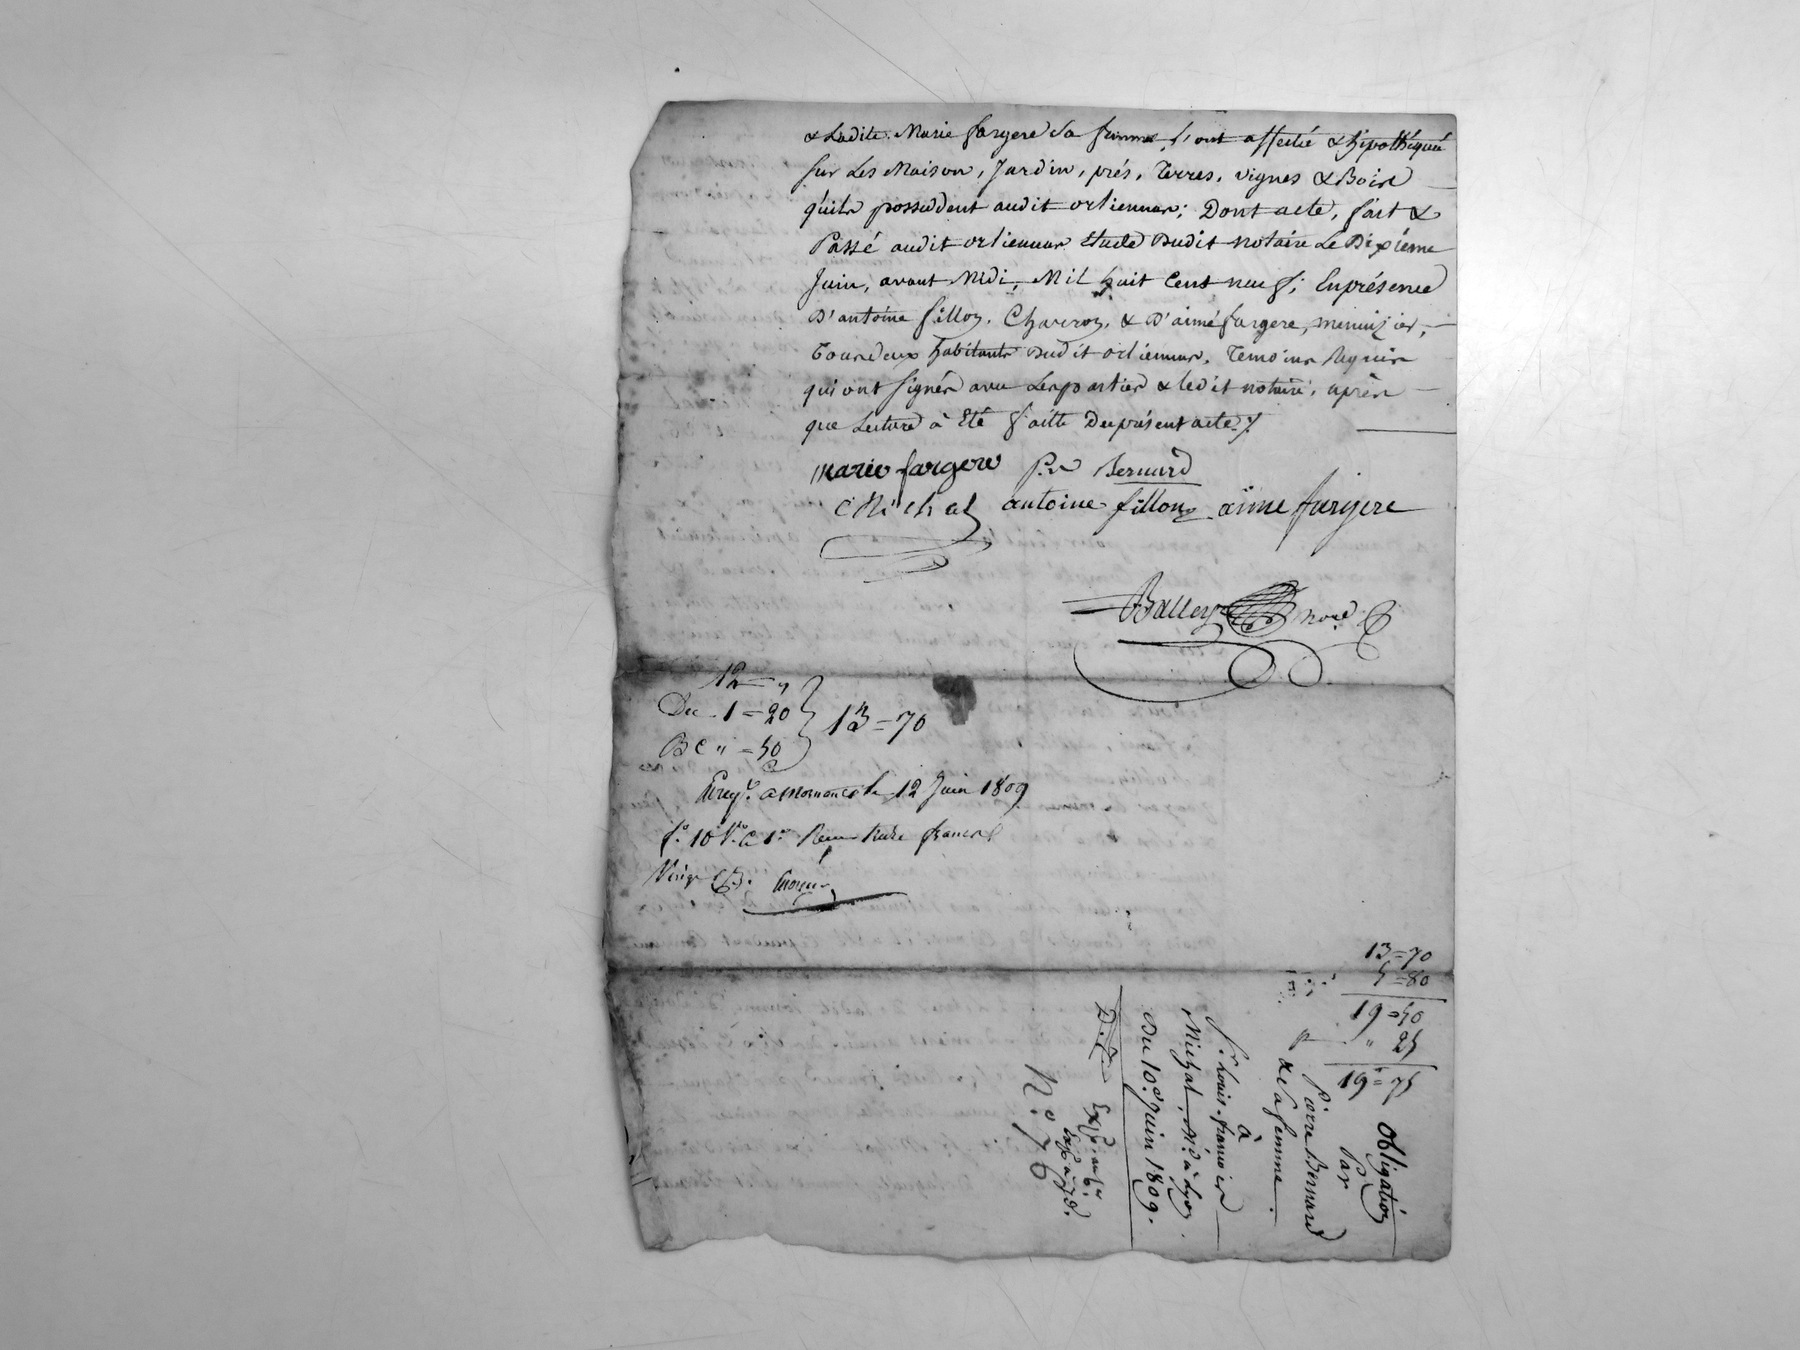 & Ladite Marie fargere sa femme, l'ont affecté & hipothéqué
sur Les Maison, Jardin, prés, Terres, vignes & Bois
quils possèdent audit orliennas; Dont acte, fait &
Passé audit orliennas Etude Dudit notaire Le Dixième
Juin, avant Midi, Mil huit Cent neuf; Enprésence
D'antoine fillon, Charron, & D'aimé fargere, menuizier,
Tous deux habitants Dudit orliennas, Temoins Requis
qui ont signés avec Lesparties & ledit notaire, après
que Lecture à Eté faitte Duprésent acte
marie fargere P.re Bernard
Michal antoine fillon aime fargere
Balley nore
12 = "
Dec. 1 = 20
13 = 70
B C " = 50
Enreg. a Mornant le 12 Juin 1809
f.o 10 V.o C 1.re Reçu treize francs
13 = 70
5 = 80
19 = 50
" 25
19 = 75
Obligation
Par
Pierre Bernard
& sa femme.
à
S.r Louis francois
Michal, M.d à Lyon.
Du 10.e Juin 1809.
N.o 76